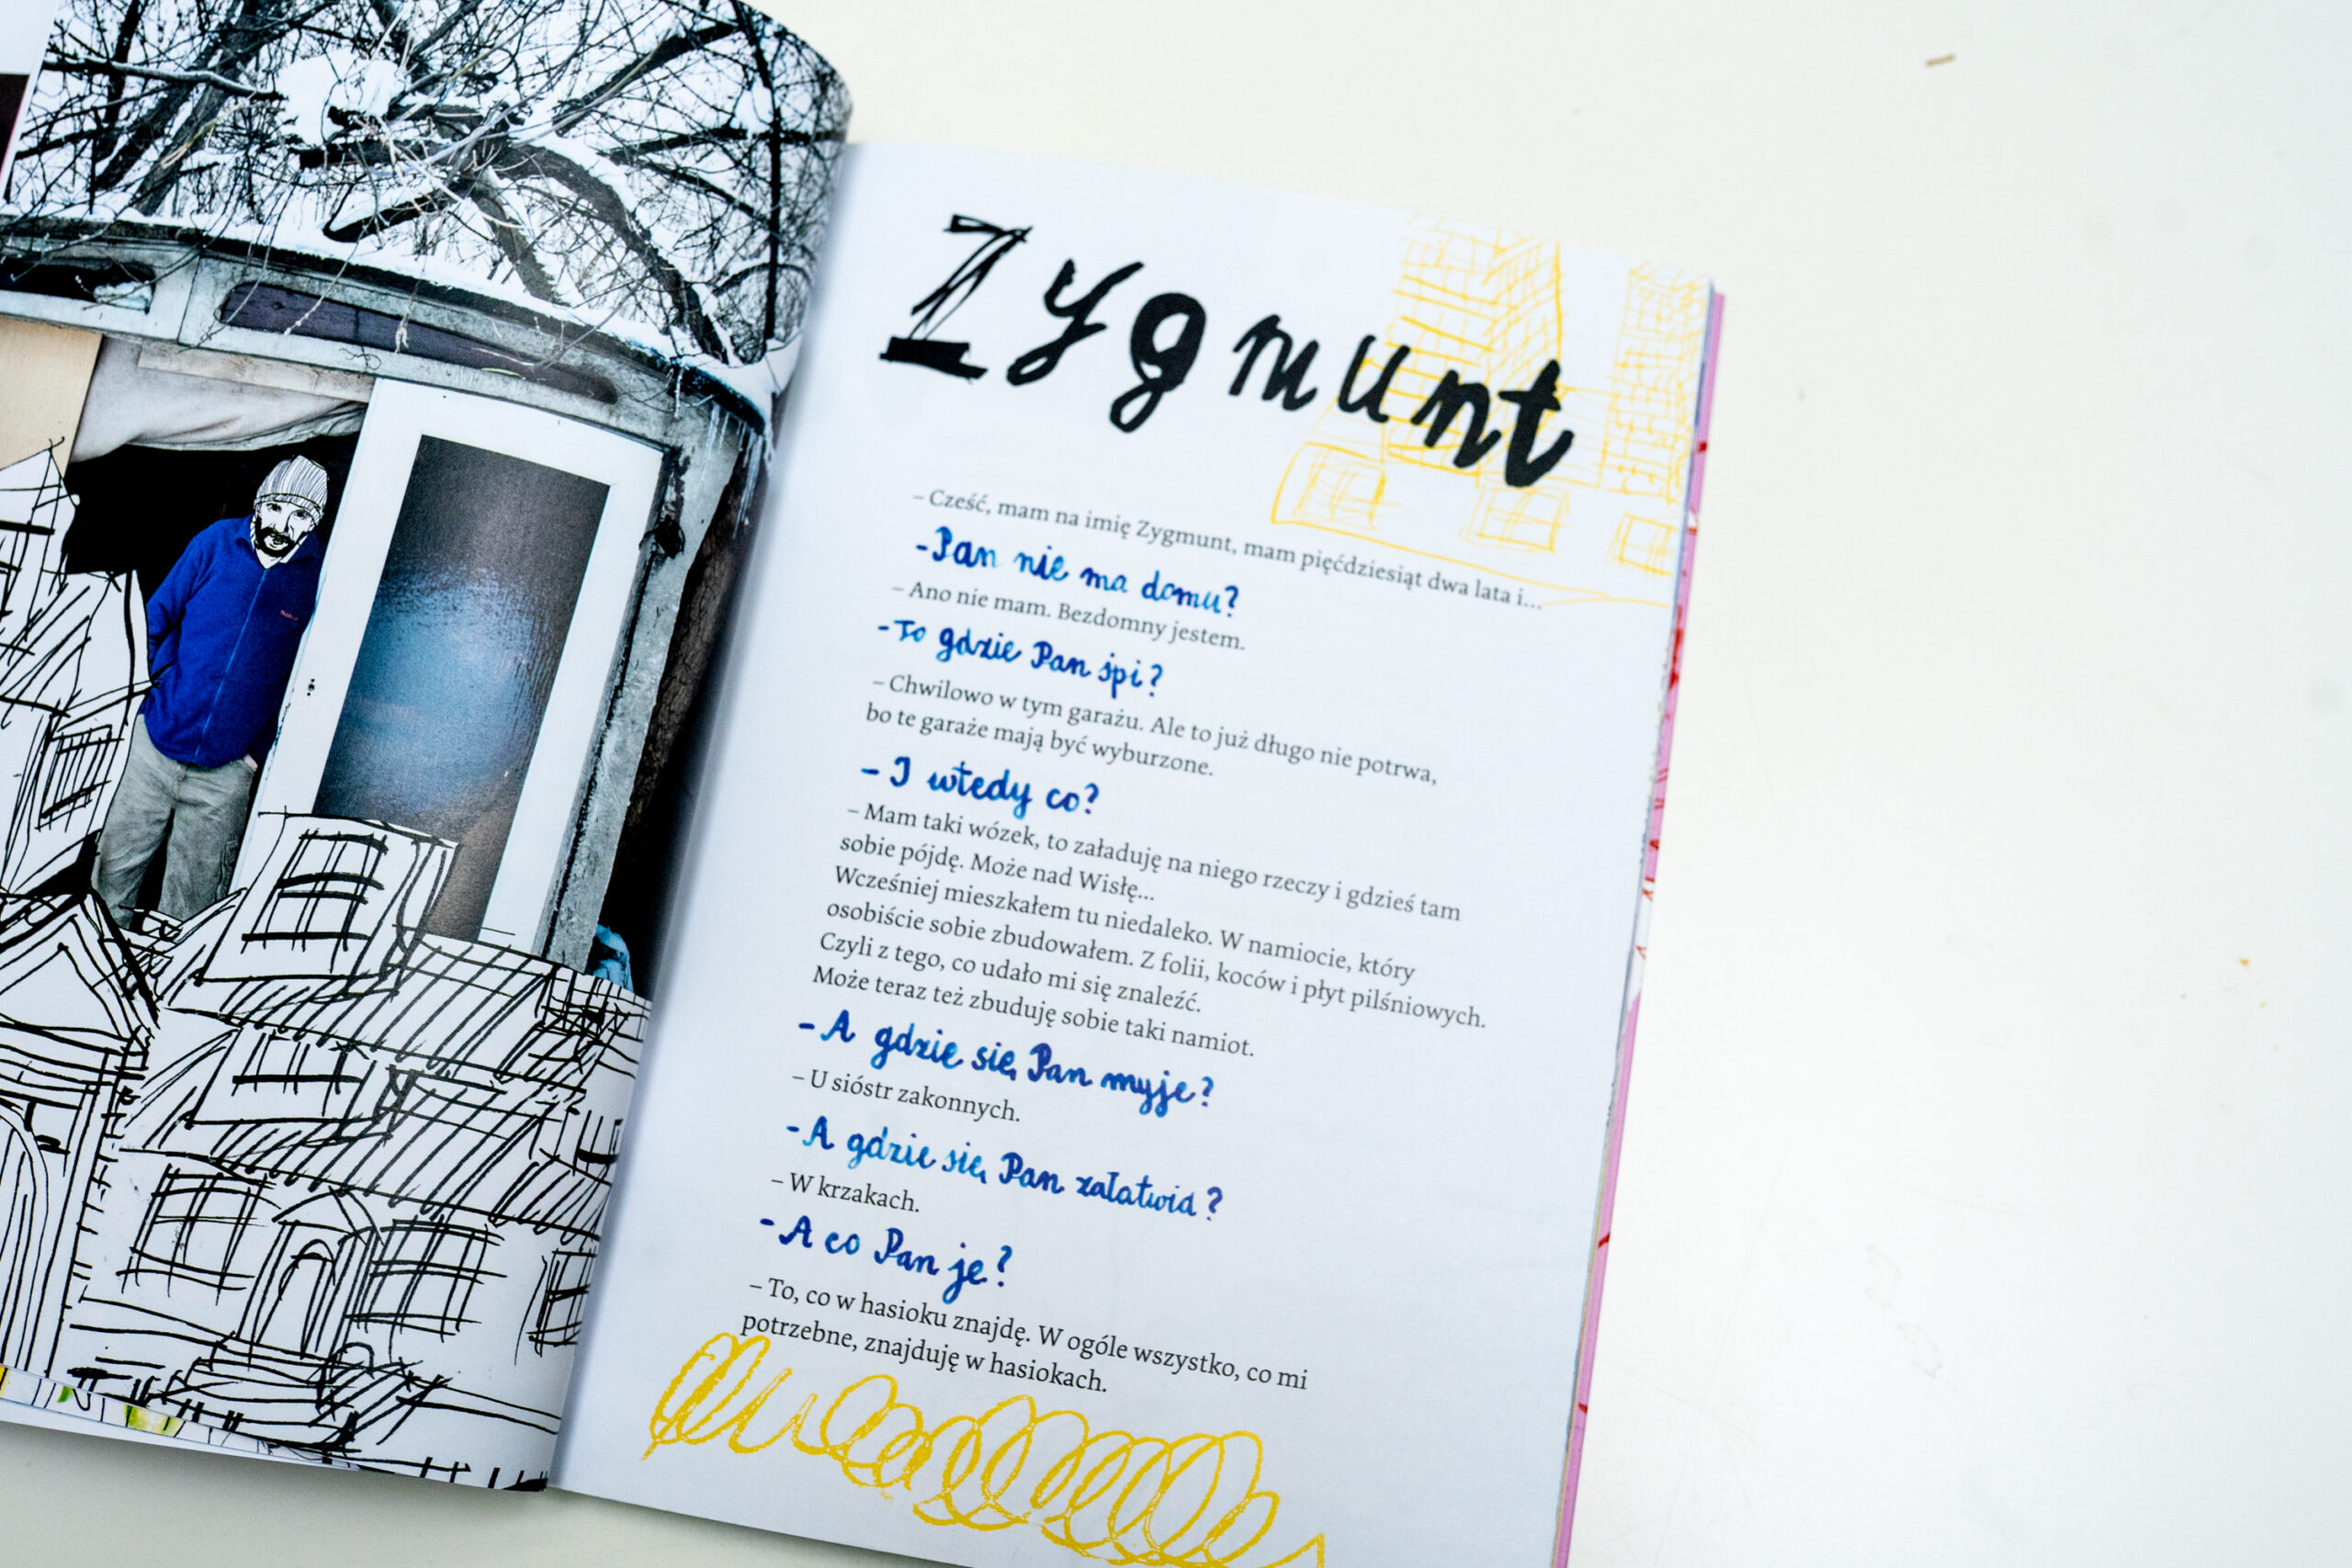 Zygmunt
– Cześć, mam na imię Zygmunt, mam pięćdziesiąt dwa lata i...
- Pan nie ma domu?
– Ano nie mam. Bezdomny jestem.
- To gdzie Pan śpi?
– Chwilowo w tym garażu. Ale to już długo nie potrwa,
bo te garaże mają być wyburzone.
- I wtedy co?
– Mam taki wózek, to załaduję na niego rzeczy i gdzieś tam
sobie pójdę. Może nad Wisłę...
Wcześniej mieszkałem tu niedaleko. W namiocie, który
osobiście sobie zbudowałem. Z folii, koców i płyt pilśniowych.
Czyli z tego, co udało mi się znaleźć.
Może teraz też zbuduję sobie taki namiot.
- A gdzie się Pan myje?
– U sióstr zakonnych.
- A gdzie się Pan załatwia?
– W krzakach.
- A co Pan je?
– To, co w hasioku znajdę. W ogóle wszystko, co mi
potrzebne, znajduję w hasiokach.